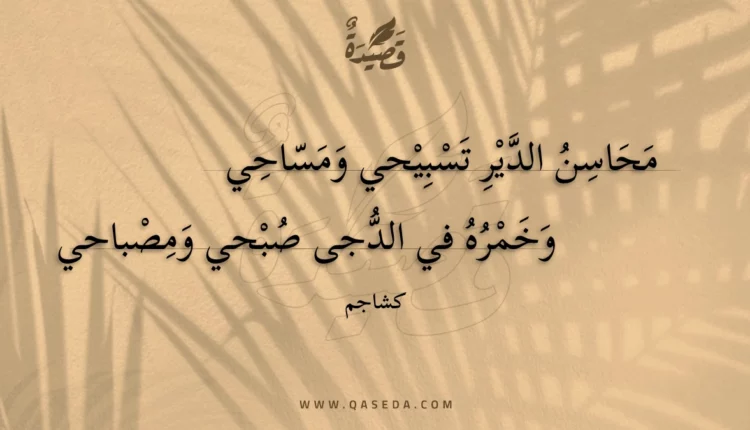 قَصِيدَةٌ
مَحَاسِنُ الدَّيْرِ تَسْبِيْحي وَمَسّاحِي
وَخَمْرُهُ في الدُّجى صُبْحي وَمِصْباحي
كشاجم
WWW.QASEDA.COM